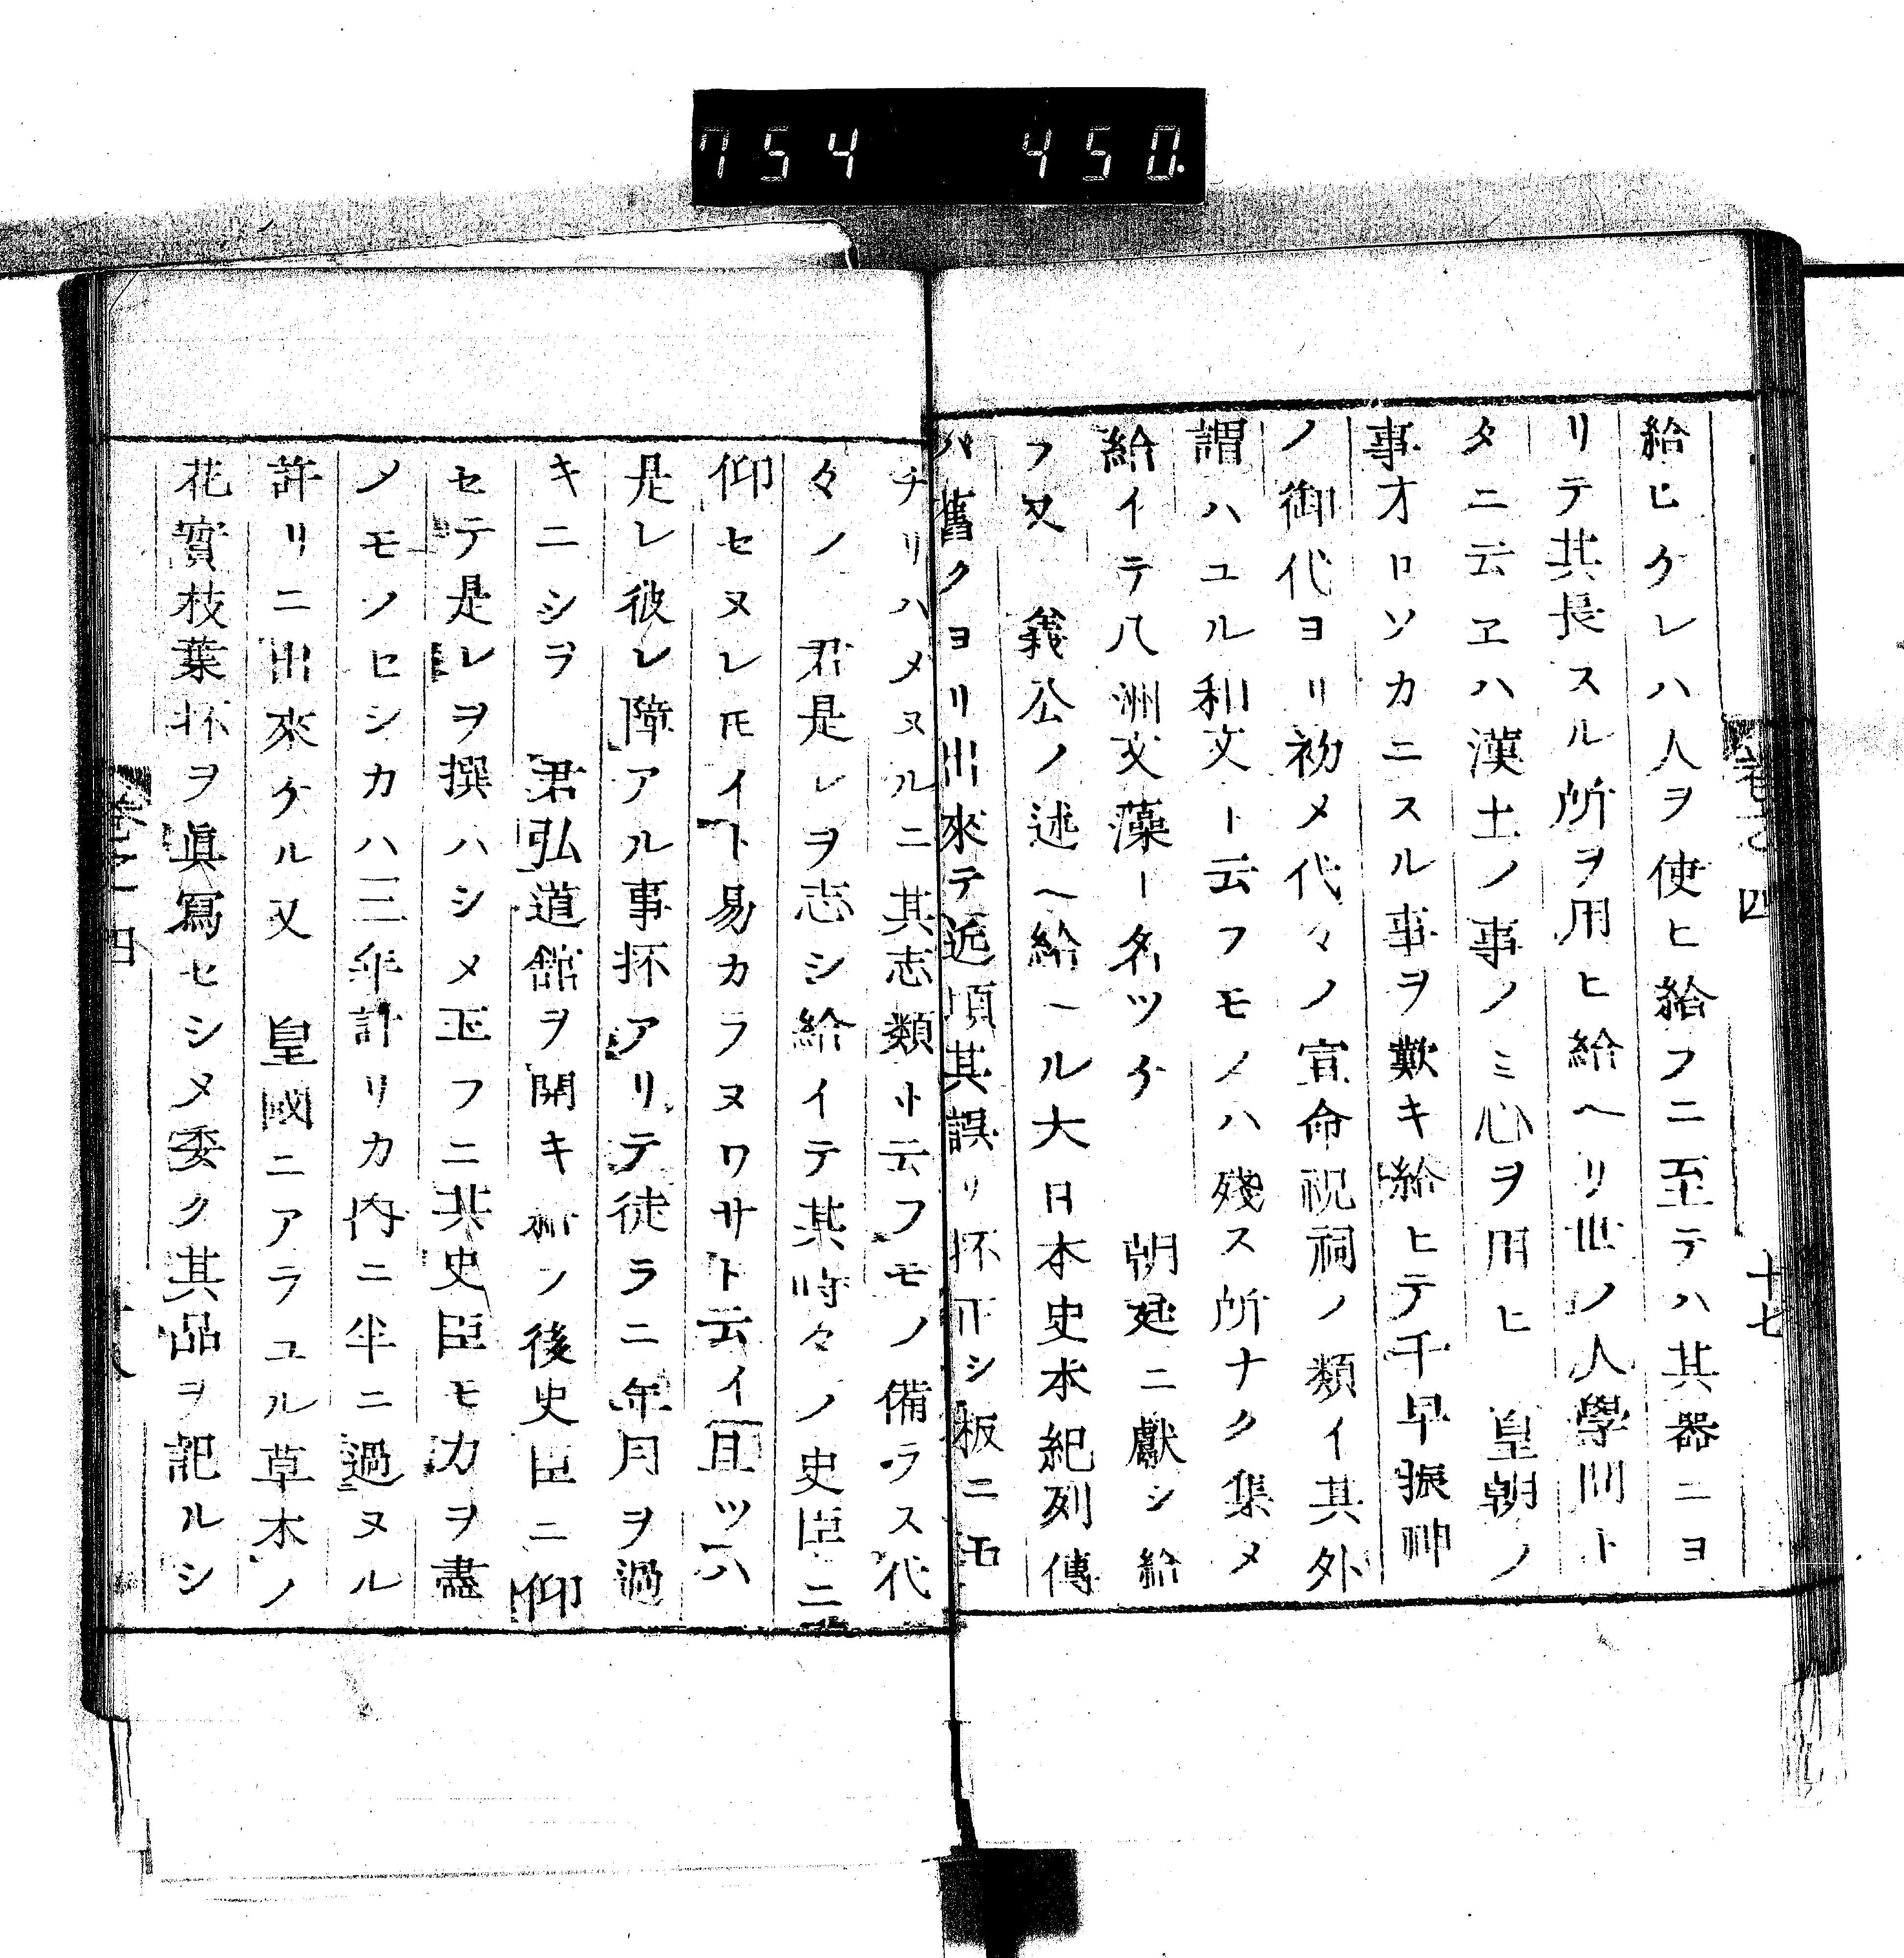 754 450.
給ヒケレハ人ヲ使ヒ給フニ至テハ其器ニヨ
リテ其長スル所ヲ用ヒ給ヘリ世ノ人學問ト
タニ云ヱハ漢土ノ事ノミ心ヲ用ヒ 皇朝ノ
事オロソカニスル事ヲ歎キ給ヒテ千早振神
ノ御代ヨリ初メ代々ノ宣命祝詞ノ類イ其外
謂ハユル和文ト云フモノハ殘ス所ナク集メ
給イテ八洲文藻ト名ツケ 朝廷ニ獻シ給
フ又 義公ノ述ヘ給ヘル大日本史本紀列傳
ハ舊クヨリ出來テ近項其誤リ抔正シ板ニモ
チリハメヌルニ其志類ト云フモノ備ラス代
々ノ 君是レヲ志シ給イテ其時々ノ史臣ニ
仰セヌレ𪜈イト易カラヌワサト云イ且ツハ
是レ彼レ障アル事抔アリテ徒ラニ年月ヲ過
キニシヲ 君弘道館ヲ開キ給ノ後史臣ニ仰
セテ是レヲ撰ハシメ玉フニ其史臣モ力ヲ盡
ノモノセシカハ三年計リカ内ニ半ニ過ヌル
許リニ出來ケル又 皇國ニアラユル草木ノ
花實枝葉抔ヲ眞寫セシメ委ク其品ヲ記ルシ
四
十七
四